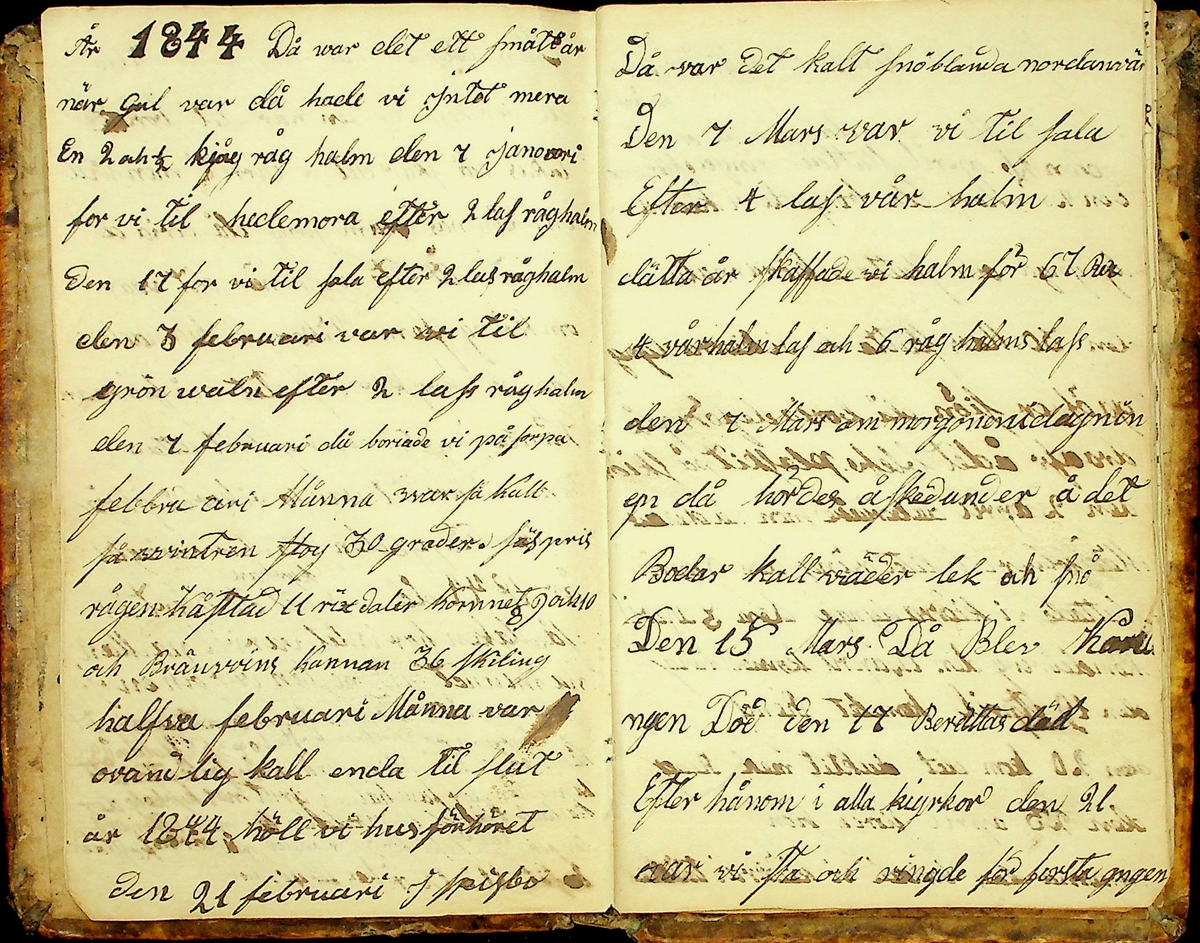 År 1844 Då war det ett smått år
när gul var då hade vi Jntet mera
En 2 och ½ kjåg råg halm den 7 janovari
for vi til hedemora efter 2 lass råghalm
Den 17 for vi til sala efter 2 lass råghalm
den 3 februari var vi til
grön waln efter 2 lass råghalm
den 7 februari då boriade vi på
febbru ari Månna war så kall
så wintren stog 30 grader
rågen håstad 11 rix daler kornnet 9 och 10
och Bränwins kannan 36 skiling
halfva februari Månna var
ovand lig kall enda til slut
år 1844 höll vi husförhöret
den 21 februari J spisbo
Då var det kalt snöblanda nordanvär
Den 7 Mars var vi til sala
Efter 4 lass vår halm
dätta år skaffade vi halm för 67 Rdr
4 vårhalm lass och 6 råg halms lass
den 7 Mars om morgonen
då hördes åskedunder å det
Bodar kalt väder lek och snö
Den 15 Mars Då Blev Kånu
ngen Död den 17 Berättas död
Efter hånom i alla kiyrkor den 21
var vi sta och ringde för forsta gngen